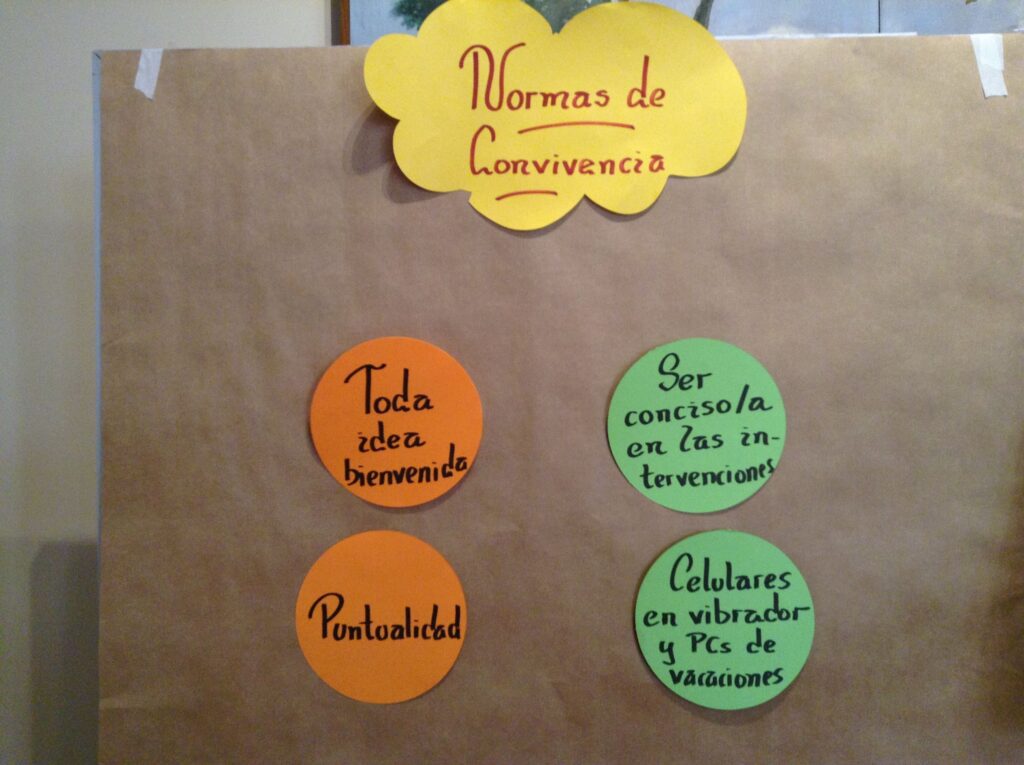 Normas de
Convivencia
Toda
idea
bienvenida
Ser
conciso/a
en las in-
tervenciones
Puntualidad
Celulares
en vibrador
y PCs de
vacaciones